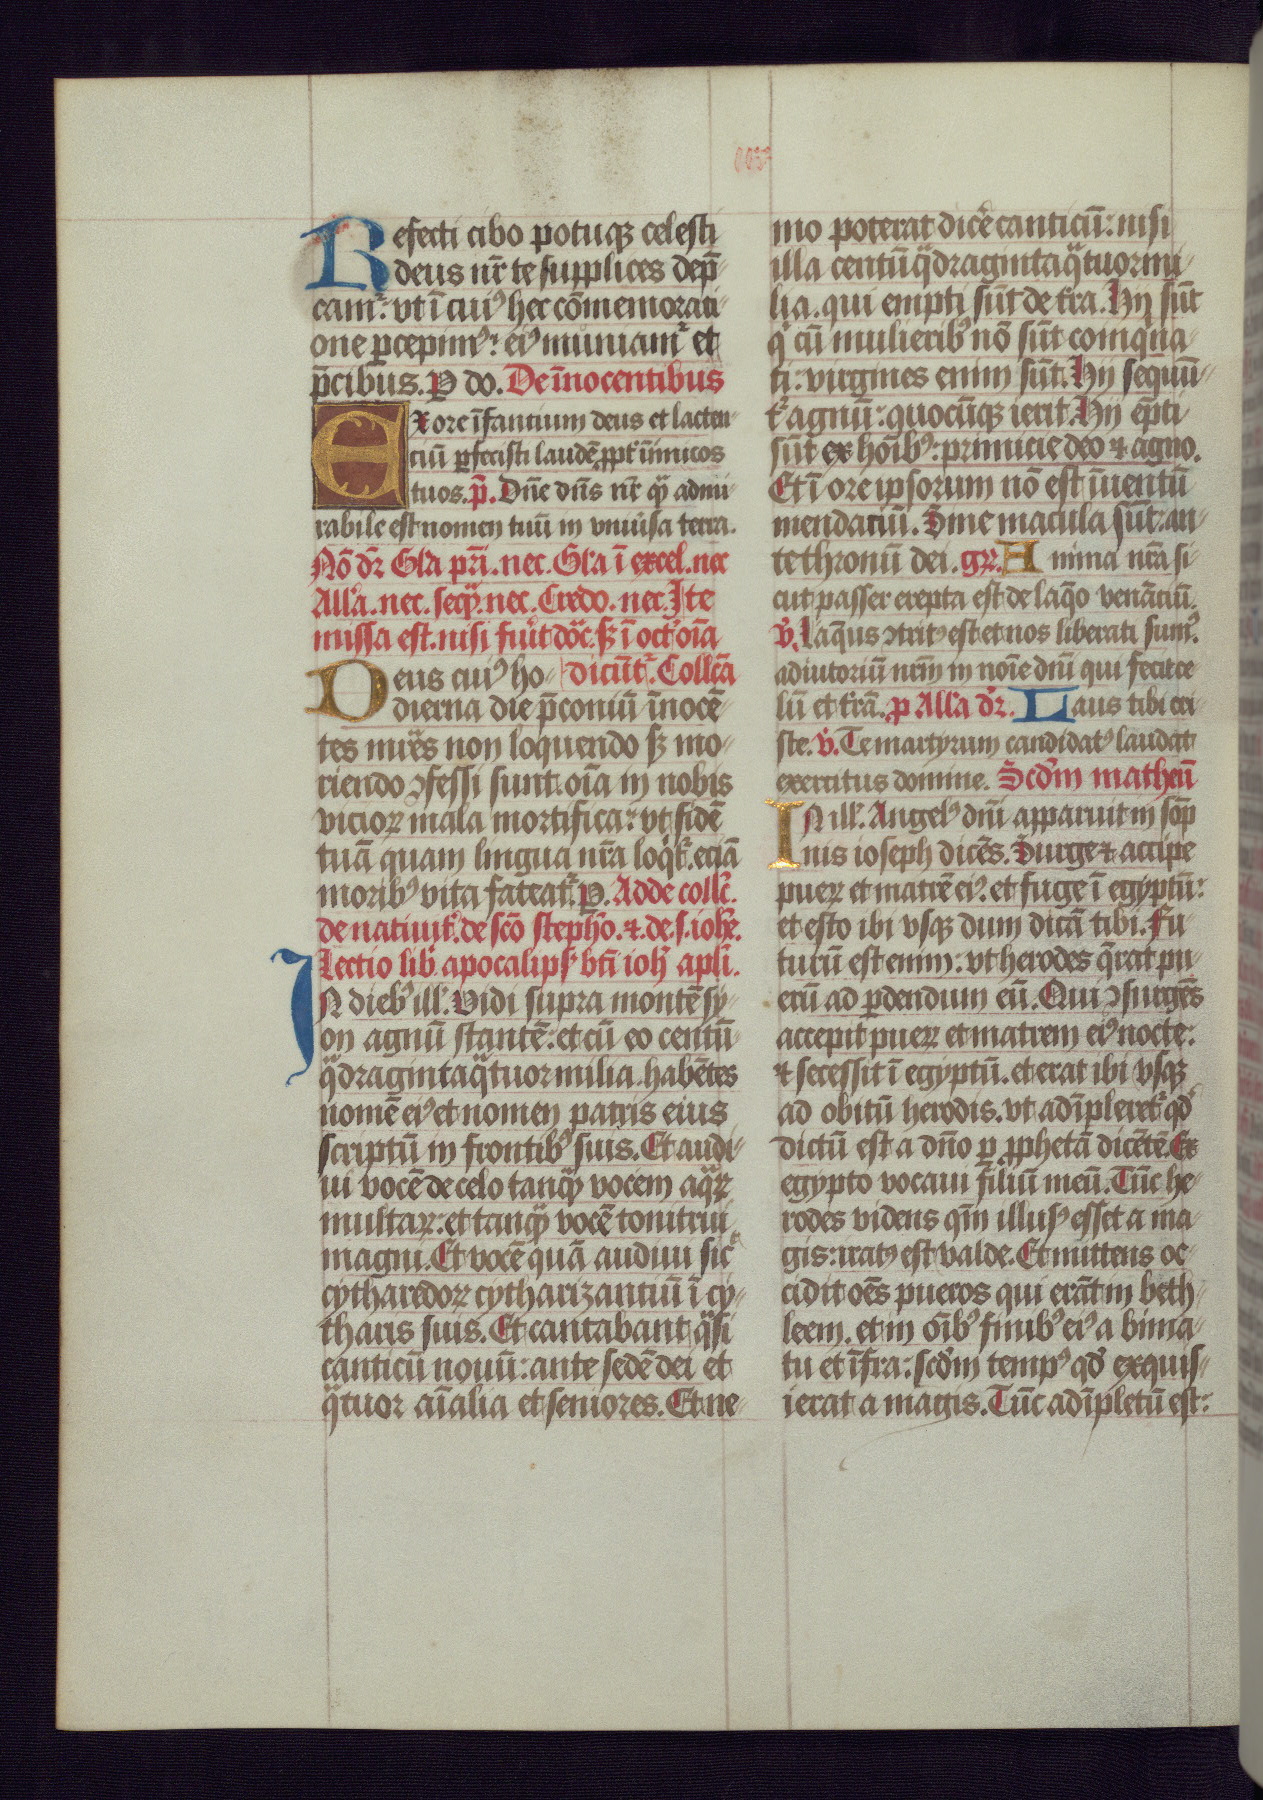 Refecti cibo potuqꝫ celesti
deus nr̄ te supplices dep̄
camꝰ: vt ī cuiꝰ hec cōmemorati
one ꝑcepimꝰ: eiꝰ muniamꝰ et
p̄cibus. P do. De īnocentibus
EX ore īfantium deus et lacten
ciū ꝑfecisti laudē ꝓpt̓ īimicos
tuos. p̄. Dn̄e dn̄s nr̄ qͣꝫ admi
rabile est nomen tuū in vniūsa terra.
Nō dr̄ Gl̓a pr̄i. nec. Gl̓a ī excel. nec
All̓a. nec. seqꝫ. nec. Credo. nec. Ite
missa est. nisi fu̓it dōc. sꝫ ī oct̓. oīa
dicūtꝰ. Collc̄a
Deus cuiꝰ ho
dierna die p̄coniū īnocē
tes mr̄es non loquendo sꝫ mo
riendo ꝯfessi sunt. oīa in nobis
vicioꝝ mala mortifica: vt fidē
tuā quam lingua nr̄a loqͥt̓. eciā
moribꝰ vita fateat̓. P. Adde collc̄.
de natiuit̓. de sc̄o stepho̓. ⁊. de. s. ioh̓e.
Lectio lib̓ apocalipsꝭ bt̄i ioh̓ apl̄i.
IN diebꝰ ill̓. Vidi supra montē sy
on agnū stantē: et cū eo centū
qͣdragintaqͣtuor milia. habētes
nomē eiꝰ et nomen patris eius
scriptū in frontibꝰ suis. Et audi
ui vocē de celo tanqͣꝫ vocem aqͣꝝ
multaꝝ: et tanqͣꝫ vocē tonitrui
magni. Et vocē quā audiui sic̓
cytharedoꝝ cytharizantiū ī cy
tharis suis. Et cantabant qͣsi
canticū nouū: ante sedē dei et
qͣtuor aīalia et seniores. Et ne
mo poterat dic̓e canticū: nisi
illa centū qͣdragintaqͣtuor mi
lia. qui empti sūt de t̓ra. Hij sūt
qͥ cū mulieribꝰ nō sūt coinqͥna
ti: virgines enim sūt. Hij sequū
t̓ agnū: quocūqꝫ ierit. Hij ēpti
sūt ex hoīibꝰ: primicie deo ⁊ agno.
Et ī ore ipsorum nō est īuentū
mendaciū. Sine macula sūt: an
te thronū dei. gr̄. Anima nr̄a si
cut passer erepta est de laq̄o venāciū.
v̓. Laq̄us ꝯtritꝰ est et nos liberati sumꝰ.
adiutoriū nr̄m in noīe dn̄i qui fecit ce
lū et t̓rā. p All̓a dr̄. Laus tibi cri
ste. v̓. Te martyrum candidatꝰ laudat
exercitus domine. Scd̓m matheū
IN ill̓. Angelꝰ dn̄i apparuit in sōp
nis ioseph dicēs. Surge ⁊ accipe
pueꝝ et matrē eiꝰ. et fuge ī egyptū:
et esto ibi vsqꝫ dum dicā tibi. Fu
turū est enim: vt herodes q̄rat pu
erū ad ꝑdendum eū. Qui ꝯsurgēs
accepit pueꝝ et matrem eiꝰ nocte:
⁊ secessit ī egyptū. et erat ibi vsqꝫ
ad obitū herodis. vt adīpleret̓ qd̓
dictū est a dn̄o ꝑ ꝓphetā dicētē. Ex
egypto vocaui filiū meū. Tūc he
rodes videns qm̄ illusꝰ esset a ma
gis: iratꝰ est valde. Et mittens oc
cidit oēs pueros qui erāt in beth
leem. et in oībꝰ finibꝰ eiꝰ a bima
tu et īfra: scd̓m tempꝰ qd̓ exquis
ierat a magis. Tūc adīpletū est: